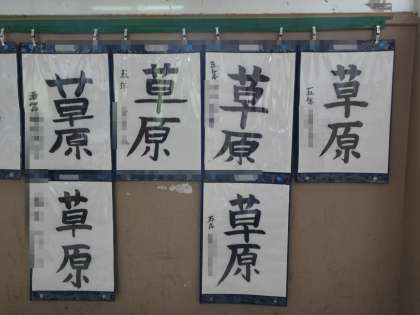 草原
五年
草原
五年
草原
五年
草原
五年
草原
草原
五年